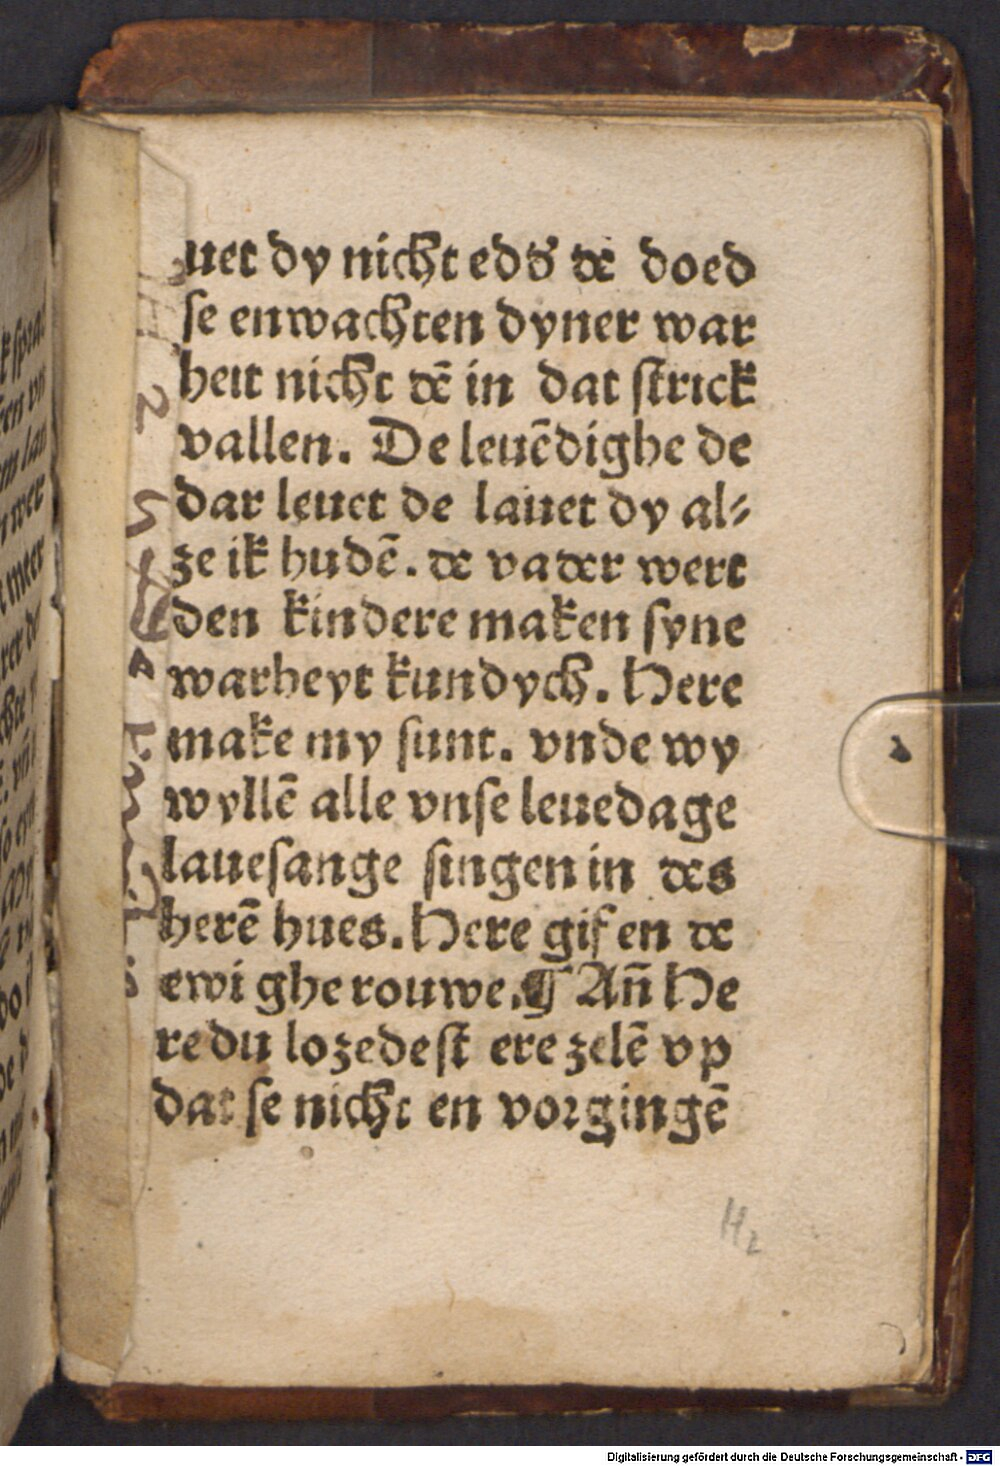 uet dy nicht eđđ de doed
se enwachten dyner war
heit nicht dē in dat strick
vallen. De leuēdighe de
dar leuet de lauet dy al⸗
ze ik hudē. de vader wert
den kindere maken syne
warheyt kundych. Here
make my sunt. vnde wy
wyllē alle vnse leuedage
lauesange singen in des
herē hues. Here gif en de
ewighe rouwe. ¶ An̄ He
re du lozedest ere zelē vp
dat se nicht en vorgingē
H2
Digitalisierung gefördert durch die Deutsche Forschungsgemeinschaft - DFG